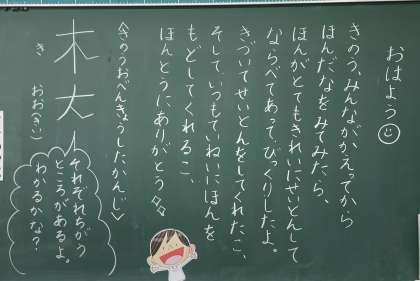 おはよう
きのう、みんながかえってから
ほんだなをみてみたら、
ほんがとてもきれいにせいとんして
ならべてあって、びっくりしたよ。
きづいてせいとんをしてくれたこ、
そして、いつもていねいにほんを
もどしてくれるこ、
ほんとうに、ありがとう
〈きのうおべんきょうしたかんじ〉
木 大 人
き おお(きい)
それぞれちがう
ところがあるよ。
わかるかな?